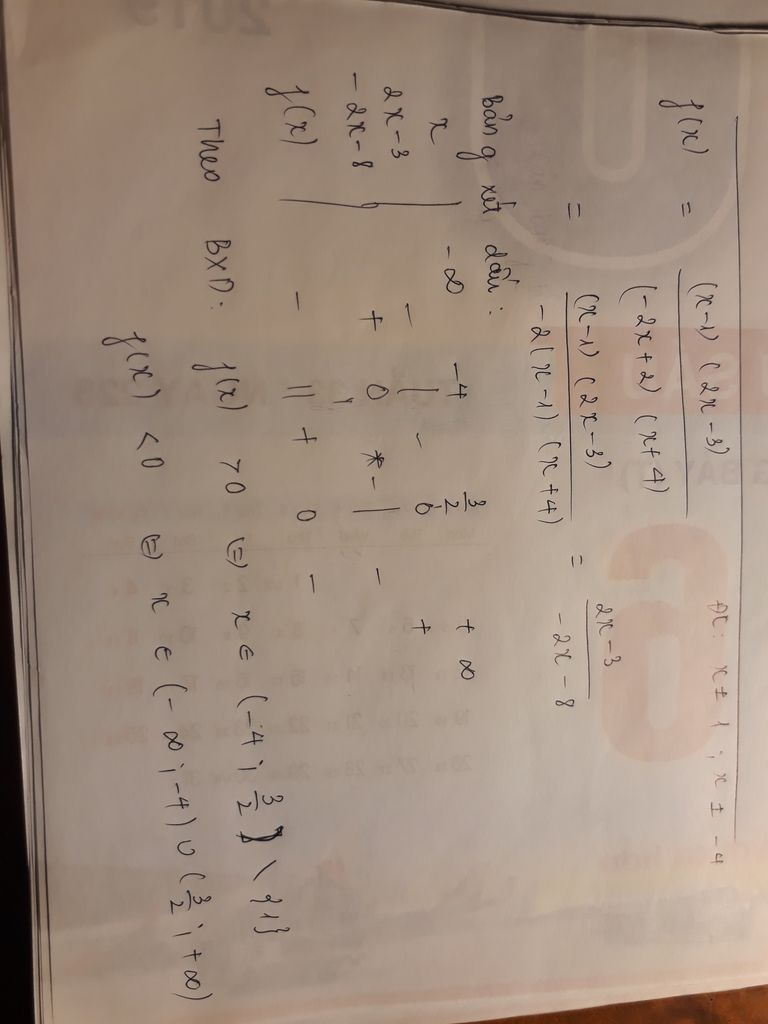 f(x) = (x-1)(2x-3) / (-2x+2)(x+4) ĐK: x ± 1 ; x ± -4
= (x-1)(2x-3) / -2(x-1)(x+4) = 2x-3 / -2x-8
bảng xét dấu:
x -∞ -4 3/2 +∞
2x-3 - | - 0 +
-2x-8 + 0 - | -
f(x) - || + 0 -
Theo BXD: f(x) >0 ⇔ x ∈ (-4 ; 3/2) \ {1}
f(x) <0 ⇔ x ∈ (-∞ ; -4) ∪ (3/2 ; +∞)